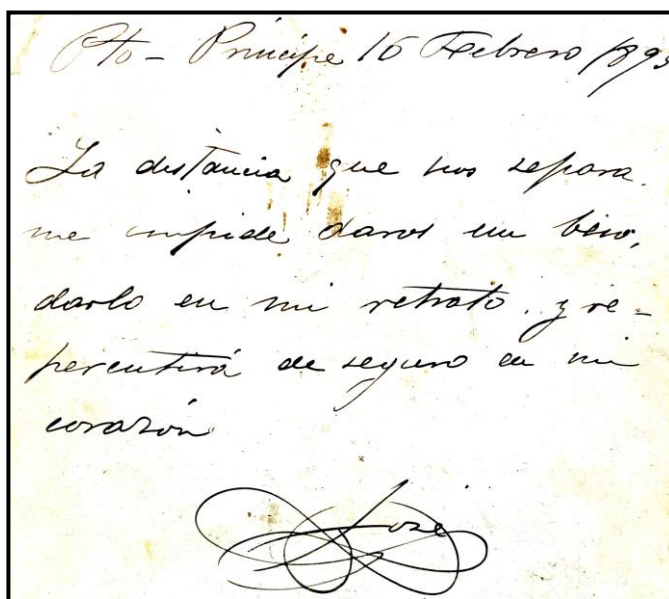 Pto - Principe 16 Febrero 189
La distancia que nos separa
me impide daros un beso,
darlo en mi retrato. y re-
percutirá de seguro en mi
corazón
José